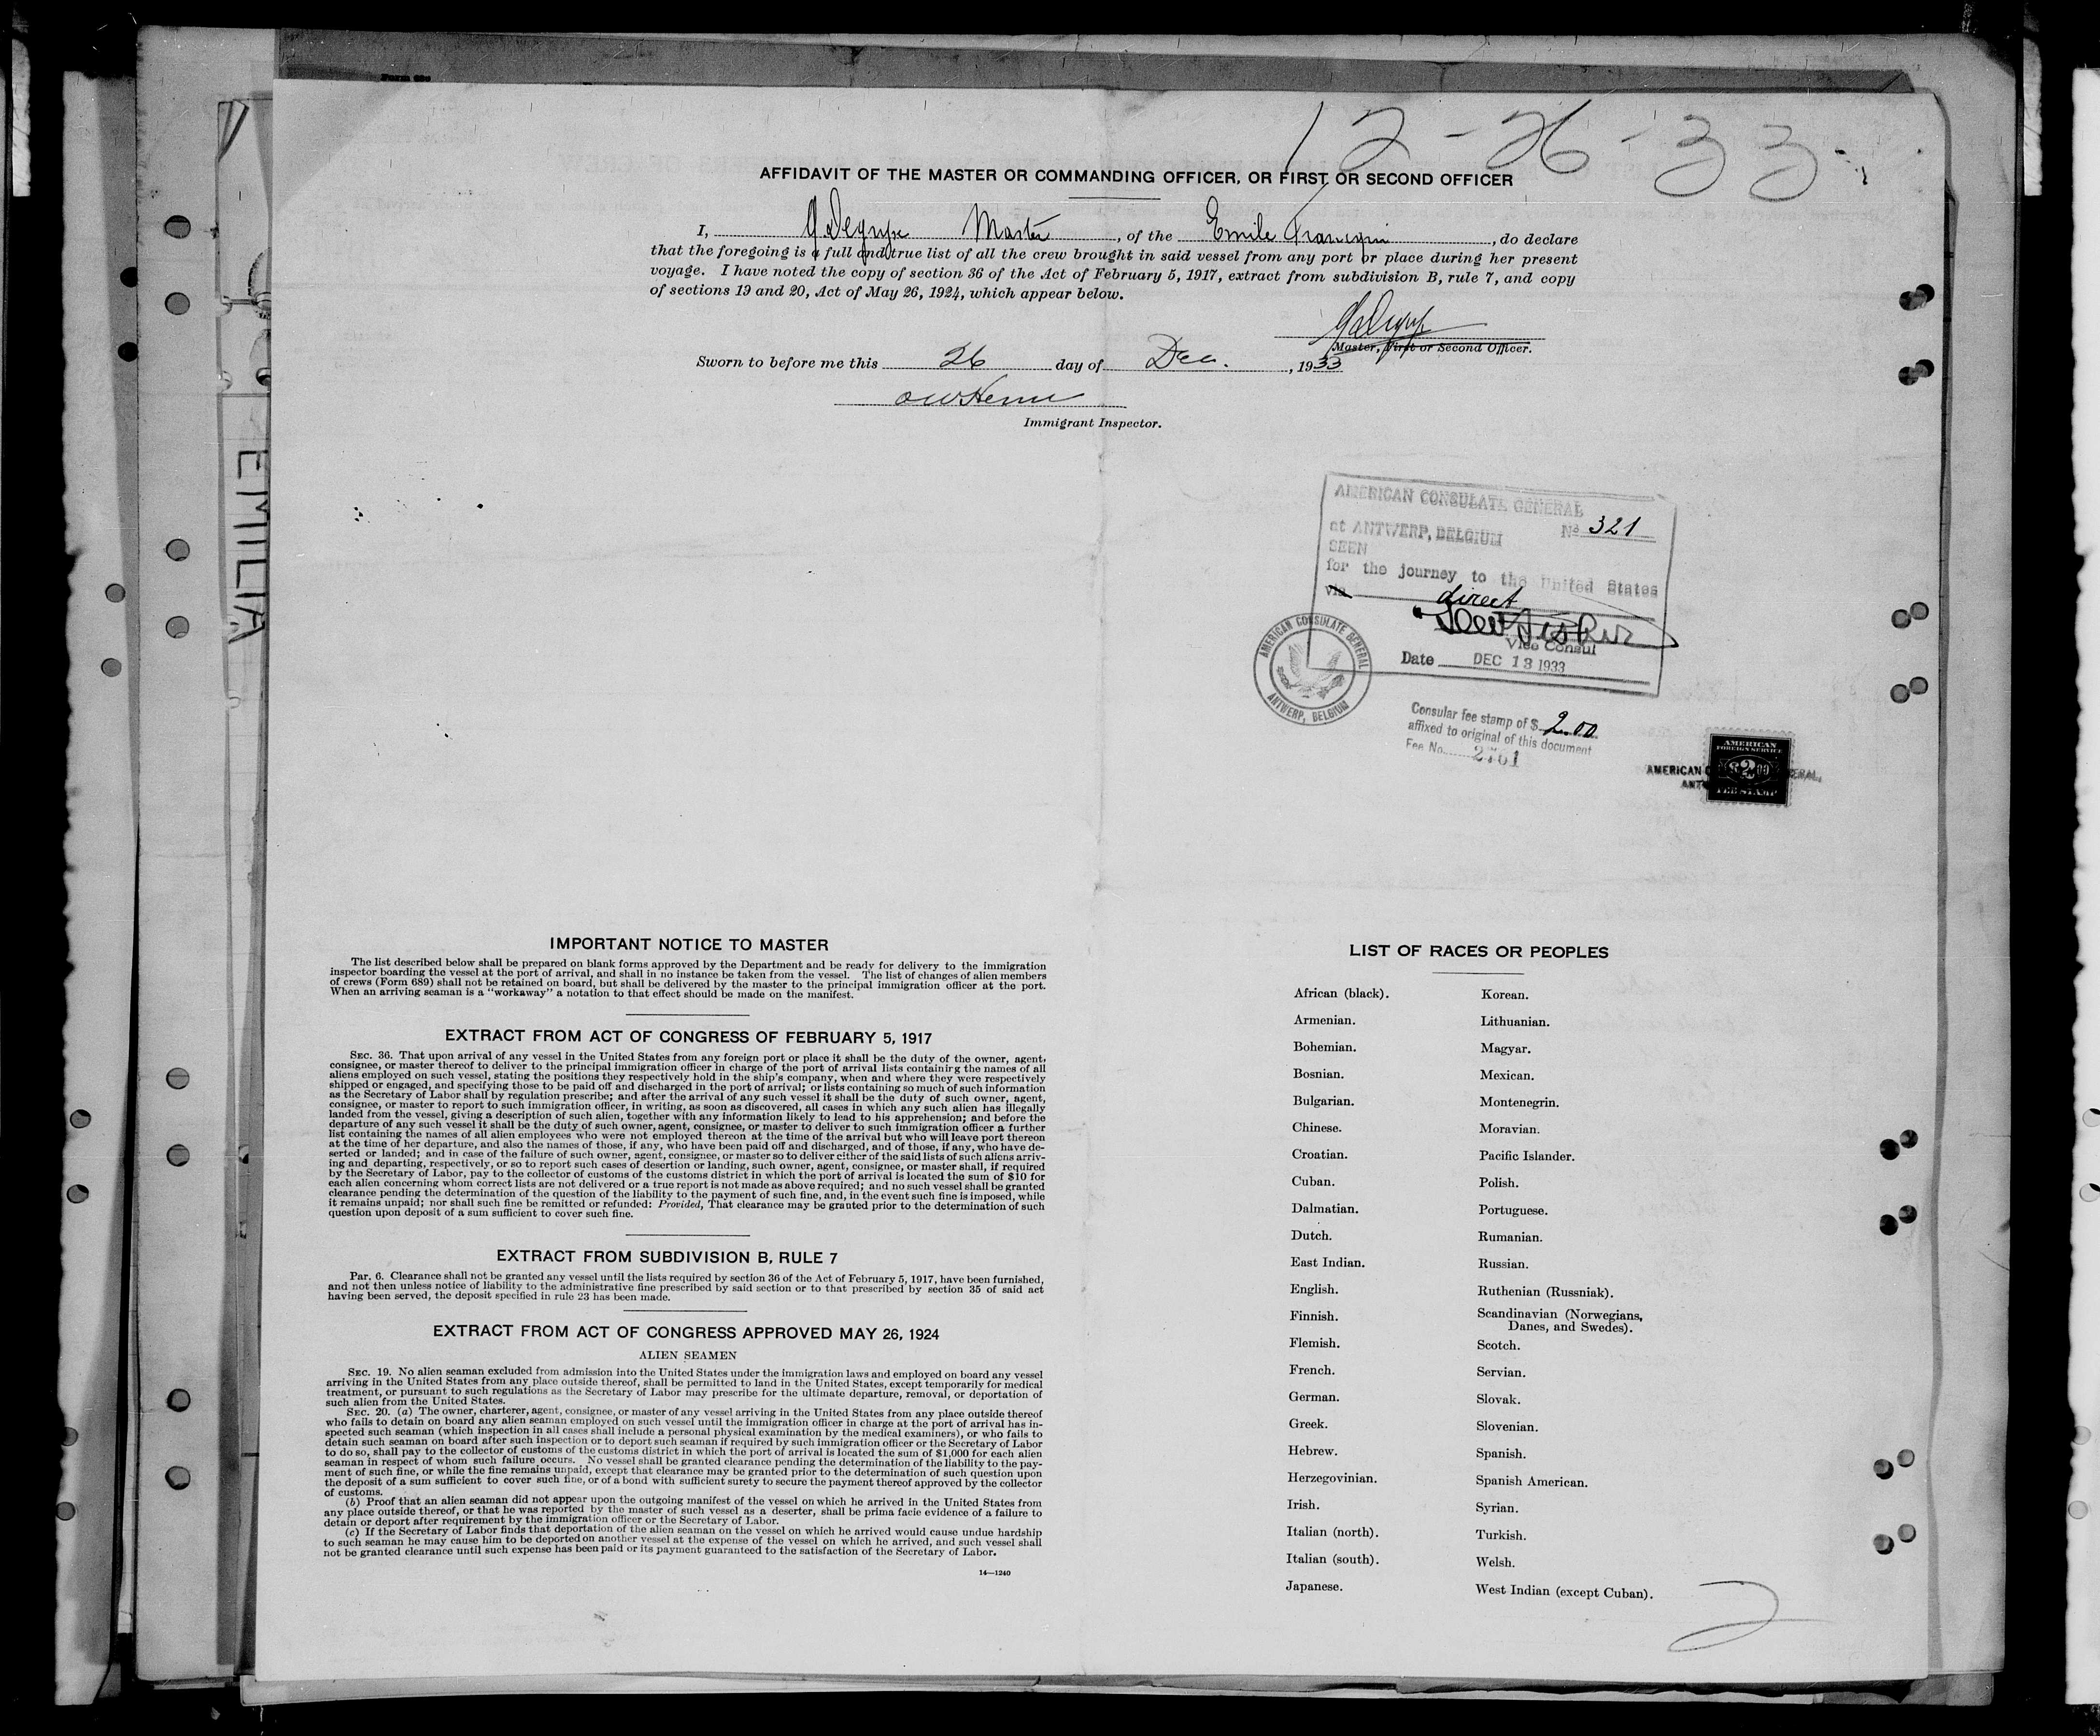 12-26-33
AFFIDAVIT OF THE MASTER OR COMMANDING OFFICER, OR FIRST OR SECOND OFFICER
I, Master, of the Emile Francqui, do declare
that the foregoing is a full and true list of all the crew brought in said vessel from any port or place during her present
voyage. I have noted the copy of section 36 of the Act of February 5, 1917, extract from subdivision B, rule 7, and copy
of sections 19 and 20, Act of May 26, 1924, which appear below.
Master, First or Second Officer.
Sworn to before me this 26 day of Dec., 1933
Immigrant Inspector.
EMILIA
AMERICAN CONSULATE GENERAL
at ANTWERP, BELGIUM No 321
SEEN
for the journey to the United States
via direct
Vice Consul
Date DEC 13 1933
AMERICAN CONSULATE GENERAL
ANTWERP, BELGIUM
Consular fee stamp of $ 2.00
affixed to original of this document
Fee No. 2761
AMERICAN
FOREIGN SERVICE
$2.00
FEE STAMP
IMPORTANT NOTICE TO MASTER
The list described below shall be prepared on blank forms approved by the Department and be ready for delivery to the immigration
inspector boarding the vessel at the port of arrival, and shall in no instance be taken from the vessel. The list of changes of alien members
of crews (Form 689) shall not be retained on board, but shall be delivered by the master to the principal immigration officer at the port.
When an arriving seaman is a "workaway" a notation to that effect should be made on the manifest.
EXTRACT FROM ACT OF CONGRESS OF FEBRUARY 5, 1917
SEC. 36. That upon arrival of any vessel in the United States from any foreign port or place it shall be the duty of the owner, agent,
consignee, or master thereof to deliver to the principal immigration officer in charge of the port of arrival lists containing the names of all
aliens employed on such vessel, stating the positions they respectively hold in the ship's company, when and where they were respectively
shipped or engaged, and specifying those to be paid off and discharged in the port of arrival; or lists containing so much of such information
as the Secretary of Labor shall by regulation prescribe; and after the arrival of any such vessel it shall be the duty of such owner, agent,
consignee, or master to report to such immigration officer, in writing, as soon as discovered, all cases in which any such alien has illegally
landed from the vessel, giving a description of such alien, together with any information likely to lead to his apprehension; and before the
departure of any such vessel it shall be the duty of such owner, agent, consignee, or master to deliver to such immigration officer a further
list containing the names of all alien employees who were not employed thereon at the time of the arrival but who will leave port thereon
at the time of her departure, and also the names of those, if any, who have been paid off and discharged, and of those, if any, who have de-
serted or landed; and in case of the failure of such owner, agent, consignee, or master so to deliver either of the said lists of such aliens arriv-
ing and departing, respectively, or so to report such cases of desertion or landing, such owner, agent, consignee, or master shall, if required
by the Secretary of Labor, pay to the collector of customs of the customs district in which the port of arrival is located the sum of $10 for
each alien concerning whom correct lists are not delivered or a true report is not made as above required; and no such vessel shall be granted
clearance pending the determination of the question of the liability to the payment of such fine, and, in the event such fine is imposed, while
it remains unpaid; nor shall such fine be remitted or refunded: Provided, That clearance may be granted prior to the determination of such
question upon deposit of a sum sufficient to cover such fine.
EXTRACT FROM SUBDIVISION B, RULE 7
Par. 6. Clearance shall not be granted any vessel until the lists required by section 36 of the Act of February 5, 1917, have been furnished,
and not then unless notice of liability to the administrative fine prescribed by said section or to that prescribed by section 35 of said act
having been served, the deposit specified in rule 23 has been made.
EXTRACT FROM ACT OF CONGRESS APPROVED MAY 26, 1924
ALIEN SEAMEN
SEC. 19. No alien seaman excluded from admission into the United States under the immigration laws and employed on board any vessel
arriving in the United States from any place outside thereof, shall be permitted to land in the United States, except temporarily for medical
treatment, or pursuant to such regulations as the Secretary of Labor may prescribe for the ultimate departure, removal, or deportation of
such alien from the United States.
SEC. 20. (a) The owner, charterer, agent, consignee, or master of any vessel arriving in the United States from any place outside thereof
who fails to detain on board any alien seaman employed on such vessel until the immigration officer in charge at the port of arrival has in-
spected such seaman (which inspection in all cases shall include a personal physical examination by the medical examiners), or who fails to
detain such seaman on board after such inspection or to deport such seaman if required by such immigration officer or the Secretary of Labor
to do so, shall pay to the collector of customs of the customs district in which the port of arrival is located the sum of $1,000 for each alien
seaman in respect of whom such failure occurs. No vessel shall be granted clearance pending the determination of the liability to the pay-
ment of such fine, or while the fine remains unpaid, except that clearance may be granted prior to the determination of such question upon
the deposit of a sum sufficient to cover such fine, or of a bond with sufficient surety to secure the payment thereof approved by the collector
of customs.
(b) Proof that an alien seaman did not appear upon the outgoing manifest of the vessel on which he arrived in the United States from
any place outside thereof, or that he was reported by the master of such vessel as a deserter, shall be prima facie evidence of a failure to
detain or deport after requirement by the immigration officer or the Secretary of Labor.
(c) If the Secretary of Labor finds that deportation of the alien seaman on the vessel on which he arrived would cause undue hardship
to such seaman he may cause him to be deported on another vessel at the expense of the vessel on which he arrived, and such vessel shall
not be granted clearance until such expense has been paid or its payment guaranteed to the satisfaction of the Secretary of Labor.
14—1240
LIST OF RACES OR PEOPLES
African (black).
Armenian.
Bohemian.
Bosnian.
Bulgarian.
Chinese.
Croatian.
Cuban.
Dalmatian.
Dutch.
East Indian.
English.
Finnish.
Flemish.
French.
German.
Greek.
Hebrew.
Herzegovinian.
Irish.
Italian (north).
Italian (south).
Japanese.
Korean.
Lithuanian.
Magyar.
Mexican.
Montenegrin.
Moravian.
Pacific Islander.
Polish.
Portuguese.
Rumanian.
Russian.
Ruthenian (Russniak).
Scandinavian (Norwegians,
Danes, and Swedes).
Scotch.
Servian.
Slovak.
Slovenian.
Spanish.
Spanish American.
Syrian.
Turkish.
Welsh.
West Indian (except Cuban).
2